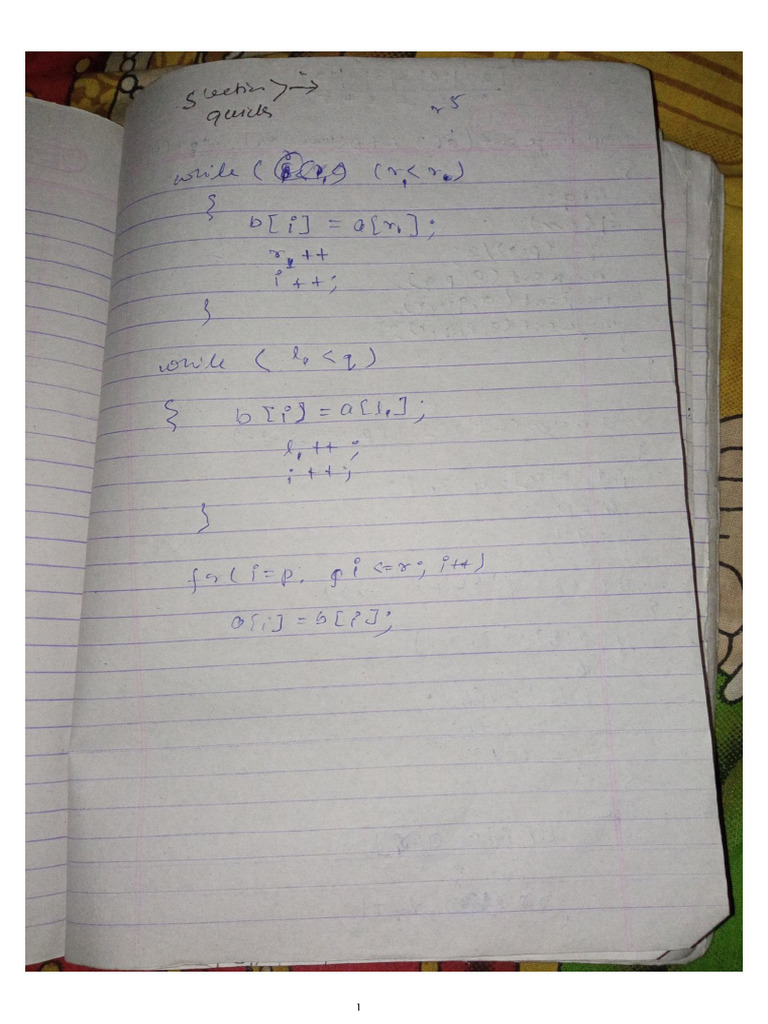 Slection
quick
while ( (r₁<r)
{
b[i] = a[r₁];
r₁++
i++;
}
while ( l₁<q)
{ b[i] = a[l₁];
l₁++;
i++;
}
for(i=p, i<=r; i++)
a[i]=b[i];
1